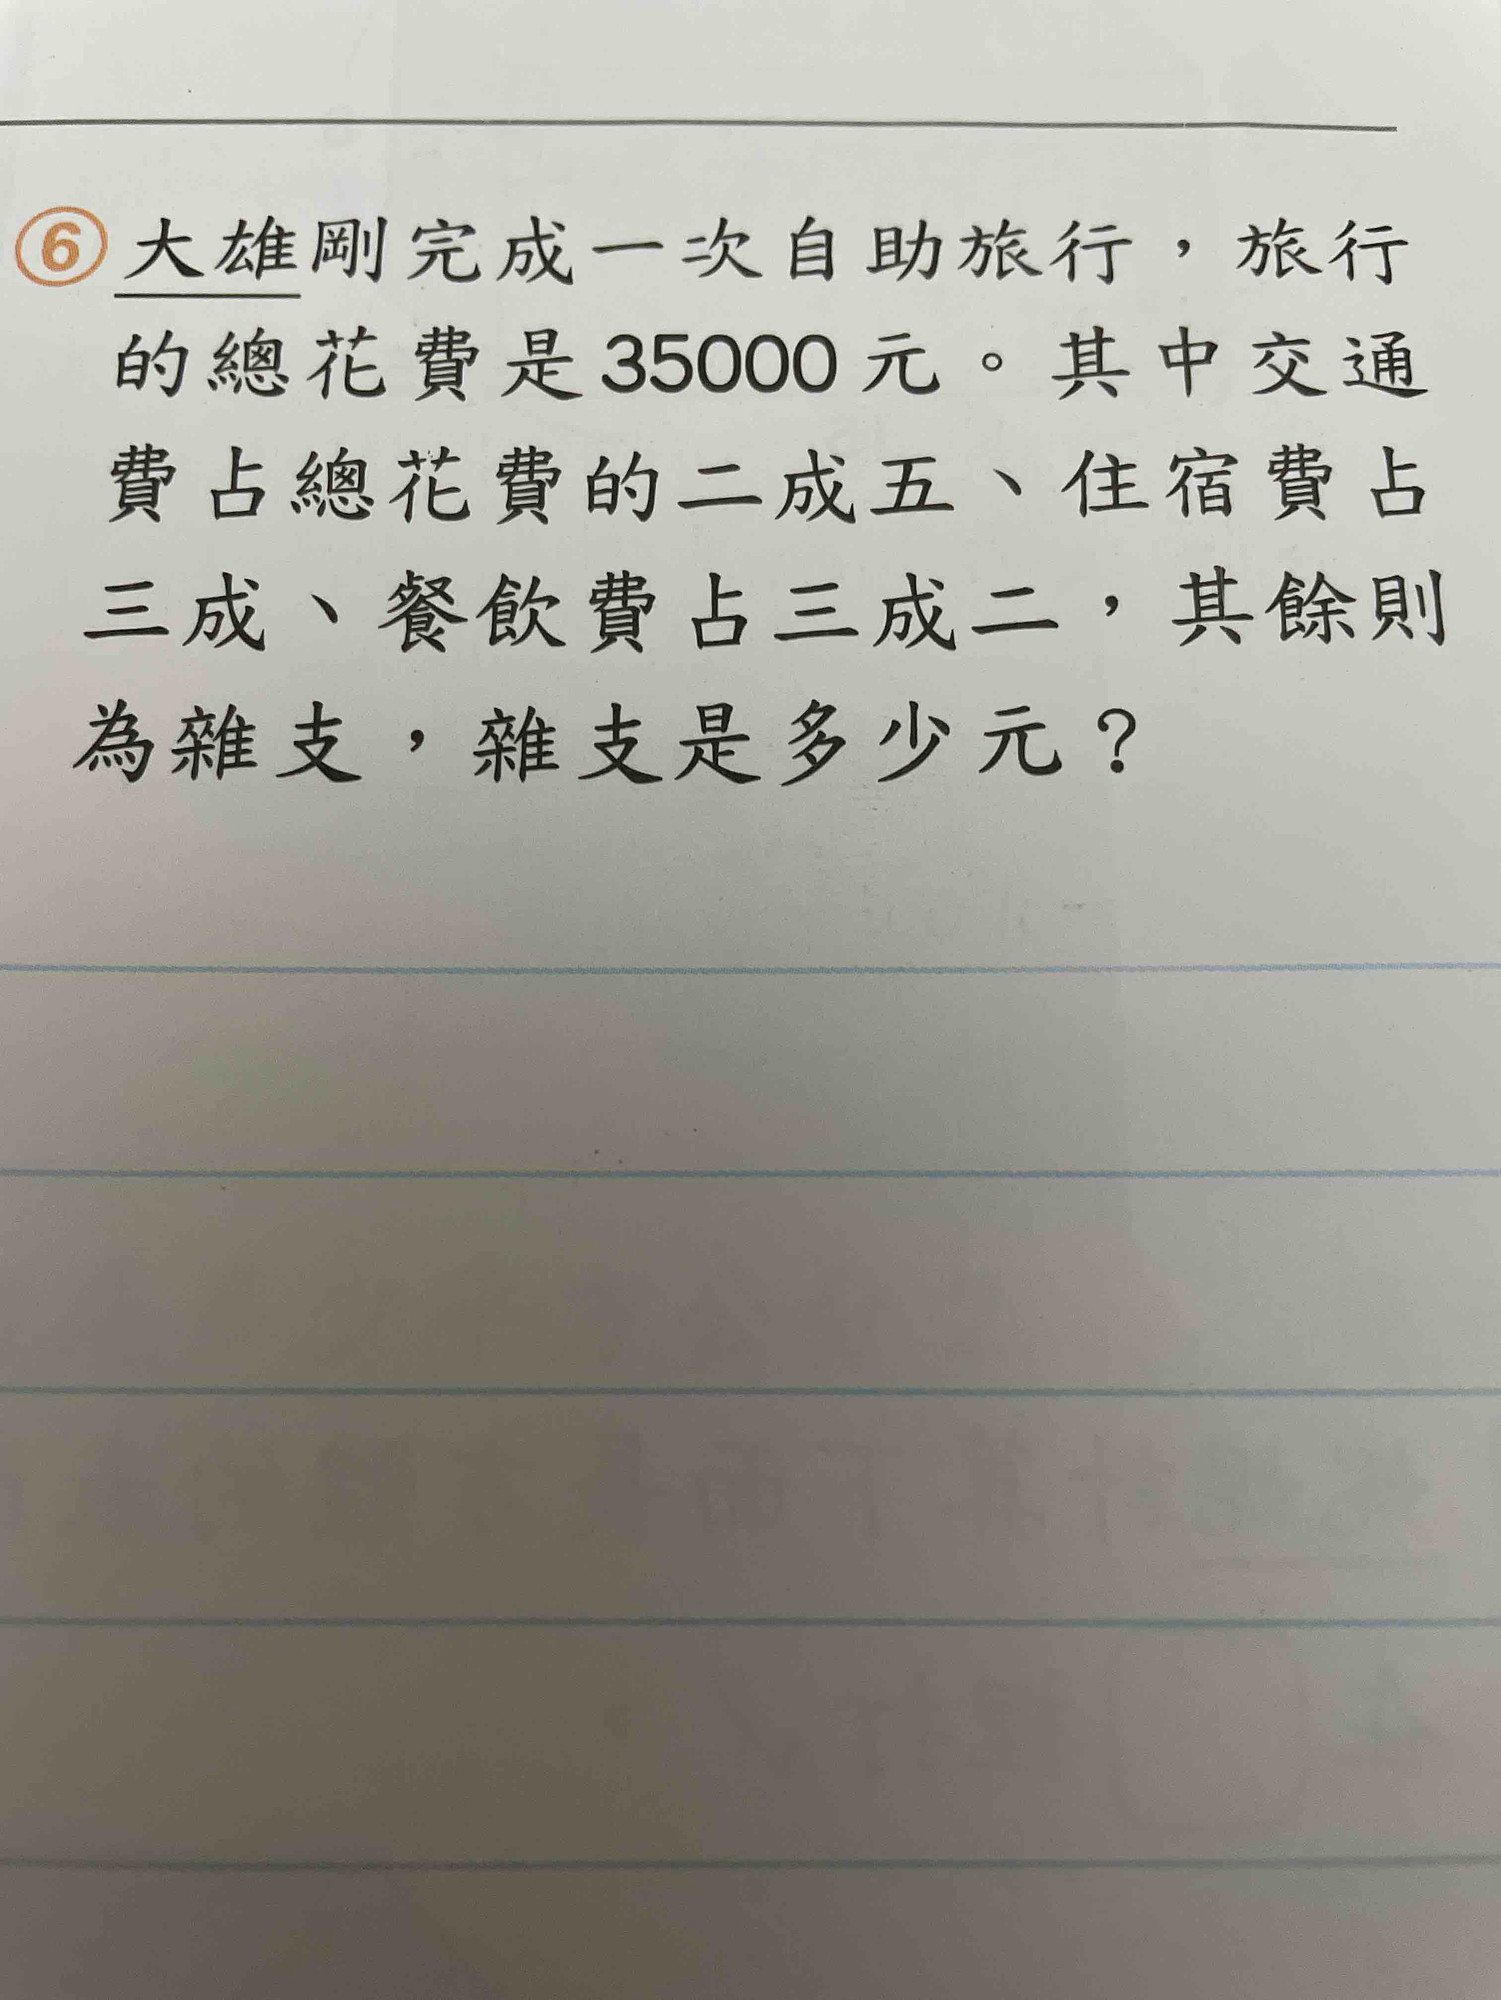 ⑥大雄剛完成一次自助旅行，旅行
的總花費是35000元。其中交通
費占總花費的二成五、住宿費占
三成、餐飲費占三成二，其餘則
為雜支，雜支是多少元？